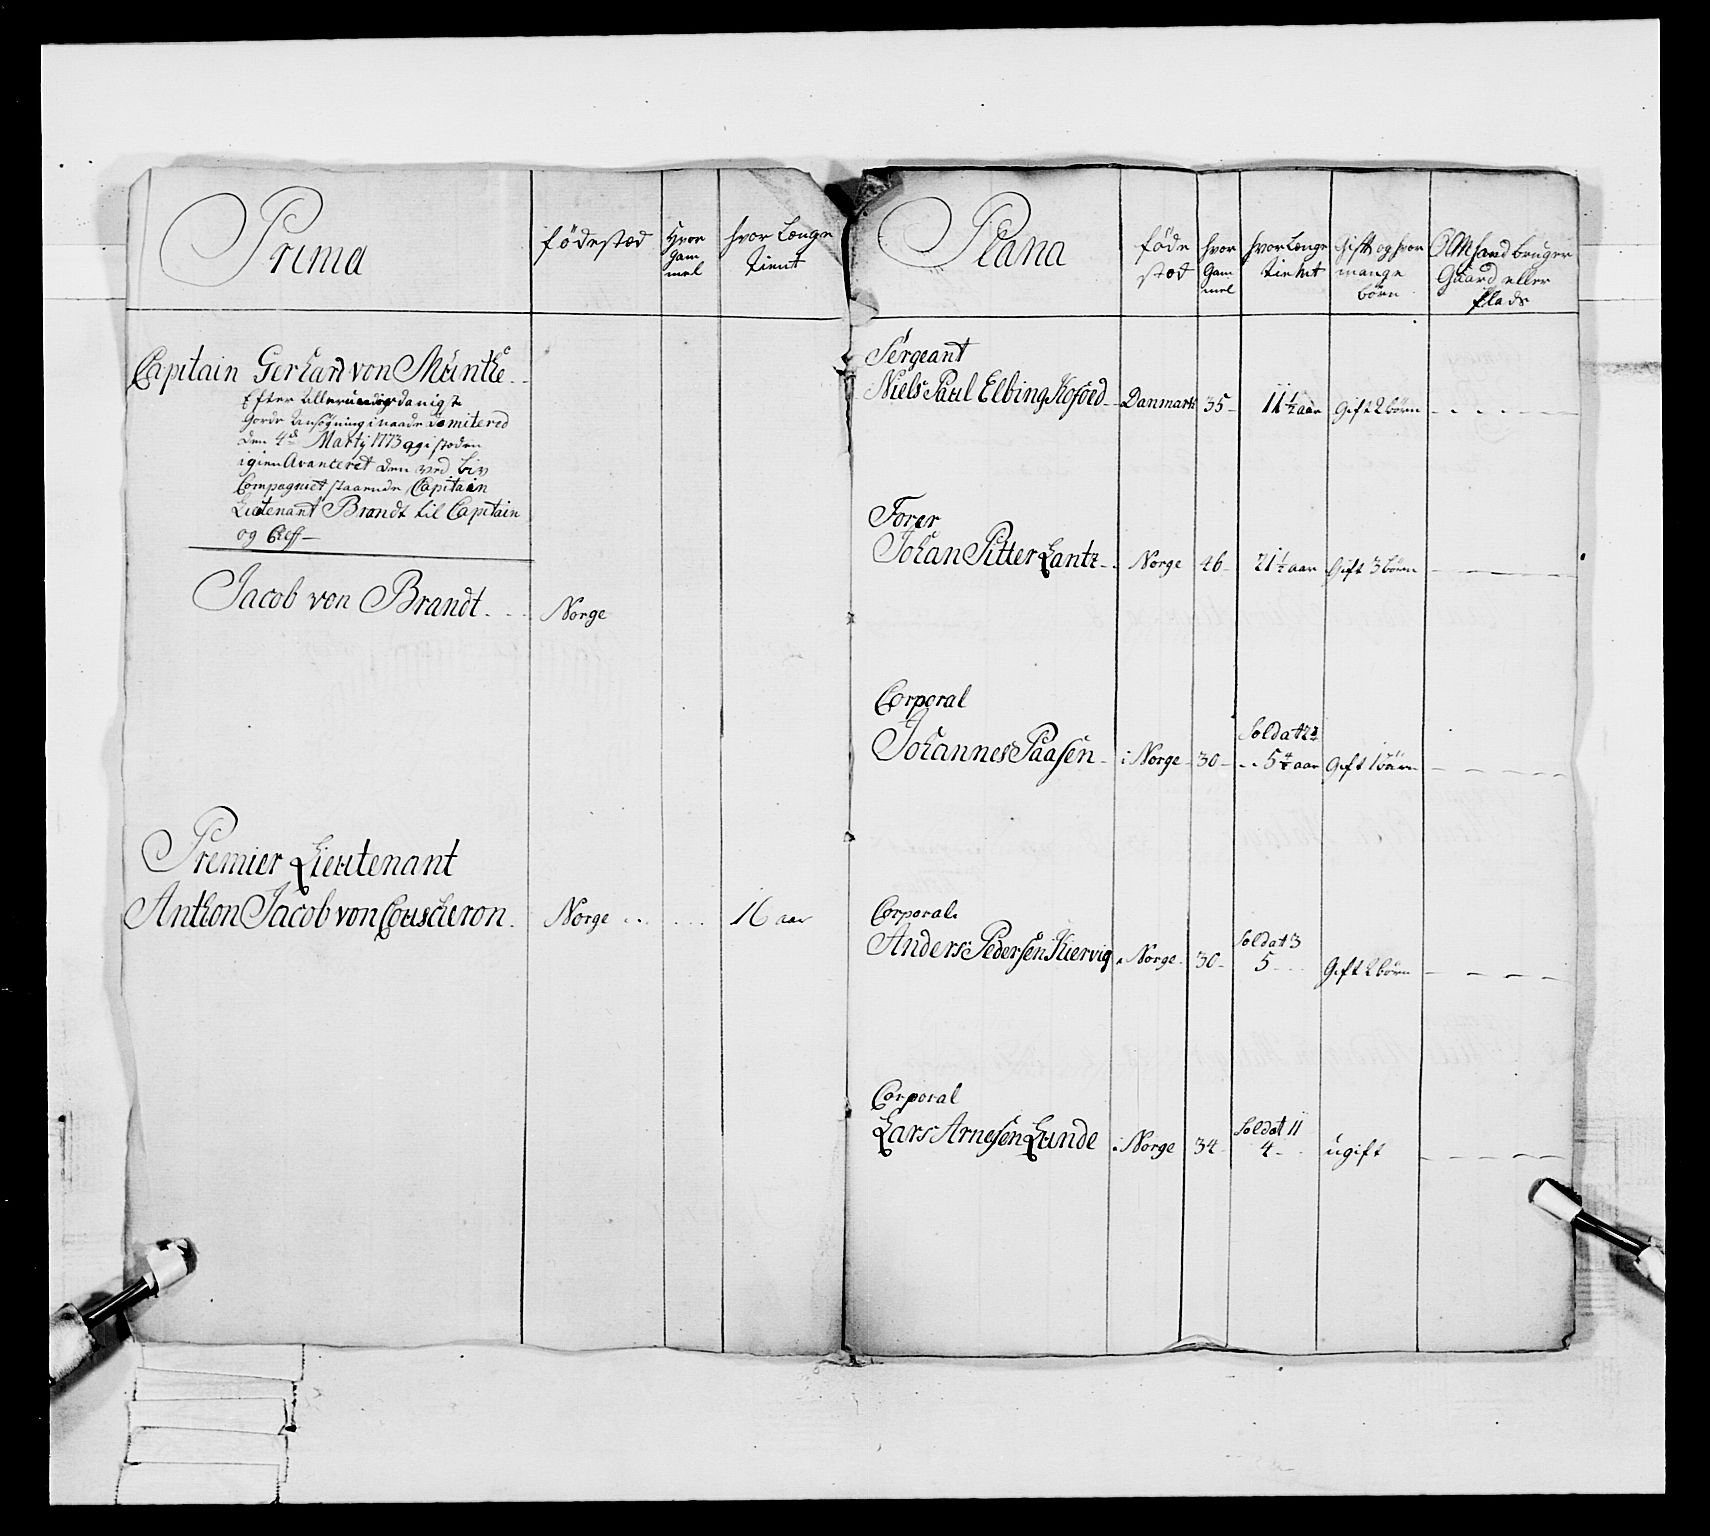 Prima
fødestæd
Hvor
Gam
mel
hvor Længe
tient
Capitain Gerhard von Munthe
Efter allerunderdanigste
giorde Ansøgning i naade Dimitered
den 4de Martj 1773 og i steden
igien Avanceret den ved Liv
Compagniet staaende Capitain
Lieutenant Brandt til Capitain
og Cheff
Jacob von Brandt
Norge
Premier Lieutenant
Anthon Jacob von Coucheron
Norge
16 aar
Plana
føde
stæd
hvor
Gam
mel
hvor Længe
tient
Gift og hvor
mange
børn
Om hand bruger
Gaard eller
Plads
Sergeant
Niels Paul Elbing Kofoed Danmark 35 11½ aar Gift 2 børn
Forer
Johan Pitter Lantz Norge 46 21½ aar Gift 3 børn
Corporal
Soldat
Johannes Paasen i Norge 30 5 aar Gift 1 børn
Corporal
Soldat 3
Anders Pedersen Kiervig Norge 30 5 Gift 2 børn
Corporal
Soldat 11
Lars Arnesen Lunde i Norge 34 4 ugift